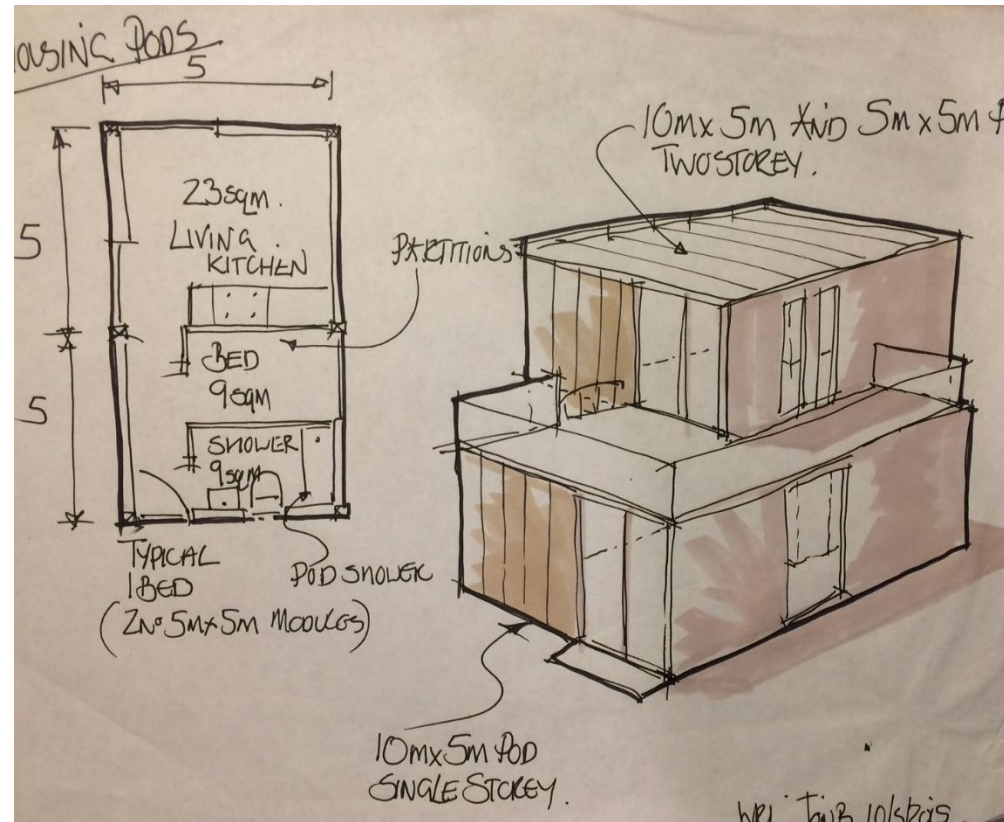 OUSING PODS
5
5
5
23sqm.
LIVING
KITCHEN
PARTITIONS
BED
9sqm
SHOWER
9sqm
TYPICAL
1BED
(2No 5Mx5M MODULES)
POD SHOWER
10mx 5m AND 5m x 5m P
TWO STOREY.
10mx5m POD
SINGLE STOREY.